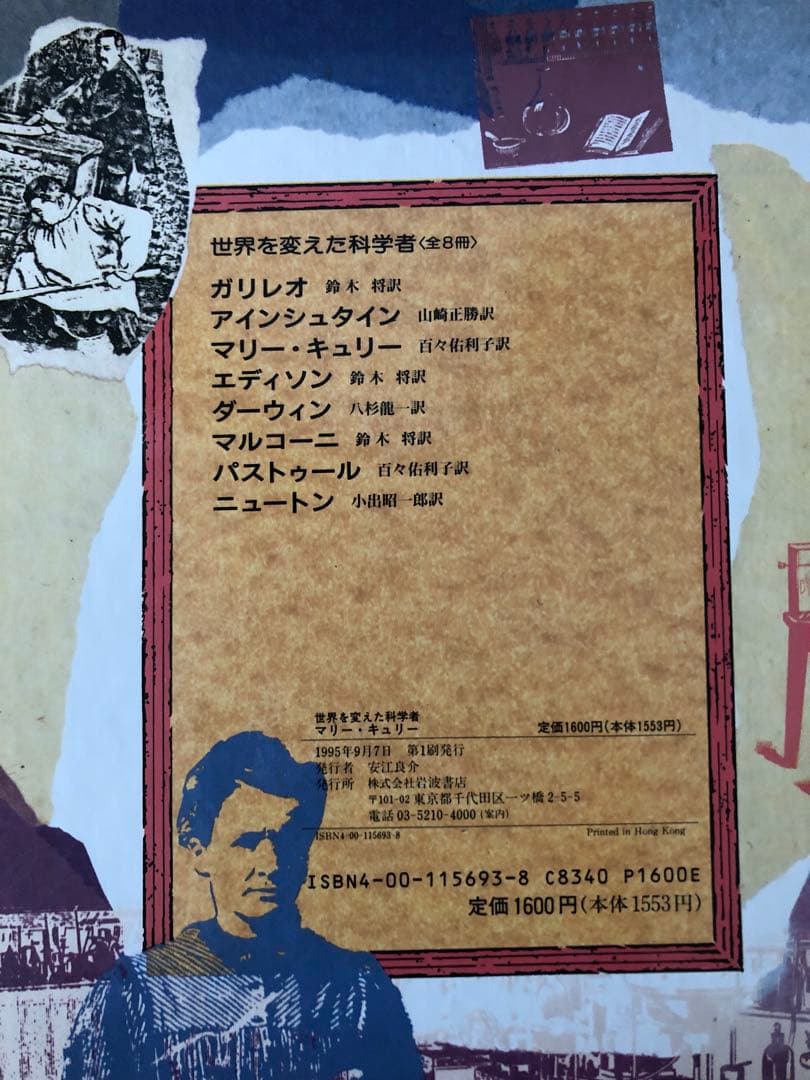 世界を変えた科学者〈全8冊〉
ガリレオ 鈴木 将訳
アインシュタイン 山崎正勝訳
マリー・キュリー 百々佑利子訳
エディソン 鈴木 将訳
ダーウィン 八杉龍一訳
マルコーニ 鈴木 将訳
パストゥール 百々佑利子訳
ニュートン 小出昭一郎訳
世界を変えた科学者
マリー・キュリー 定価1600円(本体1553円)
1995年9月7日 第1刷発行
発行者 安江良介
発行所 株式会社岩波書店
〒101-02 東京都千代田区一ツ橋2-5-5
電話 03-5210-4000(案内)
ISBN4-00-115693-8 Printed in Hong Kong
ISBN4-00-115693-8 C8340 P1600E
定価1600円(本体1553円)